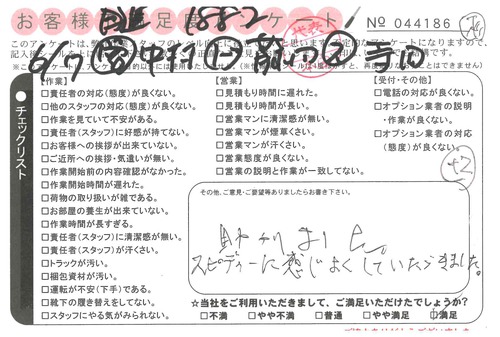 お客様満足度アンケート
No 044186
チェックリスト
【作業】
□責任者の対応(態度)が良くない。
□他のスタッフの対応(態度)が良くない。
□作業を見ていて不安がある。
□責任者(スタッフ)に好感が持てない。
□お客様への挨拶が出来ていない。
□ご近所への挨拶・気遣いが無い。
□作業前の内容確認がなかった。
□作業開始時間が遅れた。
□荷物の取り扱いが雑である。
□お部屋の養生が出来ていない。
□作業時間が長すぎる。
□責任者(スタッフ)に清潔感が無い。
□責任者(スタッフ)が汗くさい。
□トラックが汚い。
□梱包資材が汚い。
□運転が不安(下手)である。
□靴下の履き替えをしてない。
□スタッフにやる気がみられない。
【営業】
□見積もり時間に遅れた。
□見積もり時間が長い。
□営業マンに清潔感が無い。
□営業マンが煙草くさい。
□営業マンが汗くさい。
□営業態度が良くない。
□営業の説明と作業が一致してない。
【受付・その他】
□電話の対応が良くない。
□オプション業者の説明
・作業が良くない。
□オプション業者の対応
(態度)が良くない。
+2
その他、ご意見・ご要望等ありましたらお書き下さい。
助かりました。
スピーディーに感じよくしていただきました。
☆当社をご利用いただきまして、ご満足いただけたでしょうか?
□不満 □やや不満 □普通 □やや満足 □満足